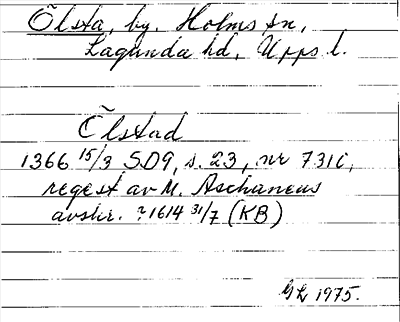 Ölsta, by, Holms sn,
Lagunda hd, Upps l.
Ölstad
1366 15/3 SD9, s. 23, nr 731i,
regest av M. Aschaneus
avskr. ? 1614 31/7 (KB)
1975.